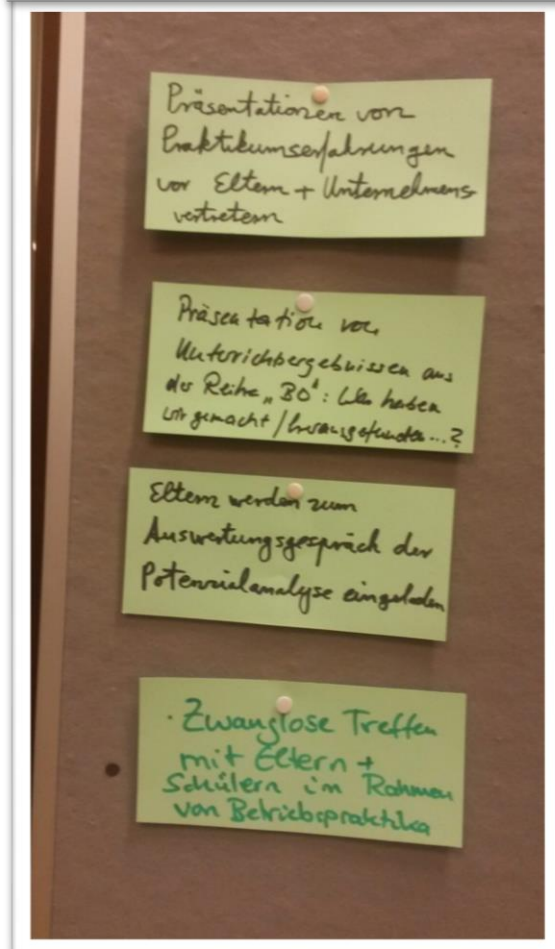 Präsentationen von
Praktikumserfahrungen
vor Eltern + Unternehmens
vertretern
Präsentation von
Unterrichtsergebnissen aus
der Reihe „BO“: Was haben
wir gemacht / herausgefunden...?
Eltern werden zum
Auswertungsgespräch der
Potenzialanalyse eingeladen
· Zwanglose Treffen
mit Eltern +
Schülern im Rahmen
von Betriebspraktika